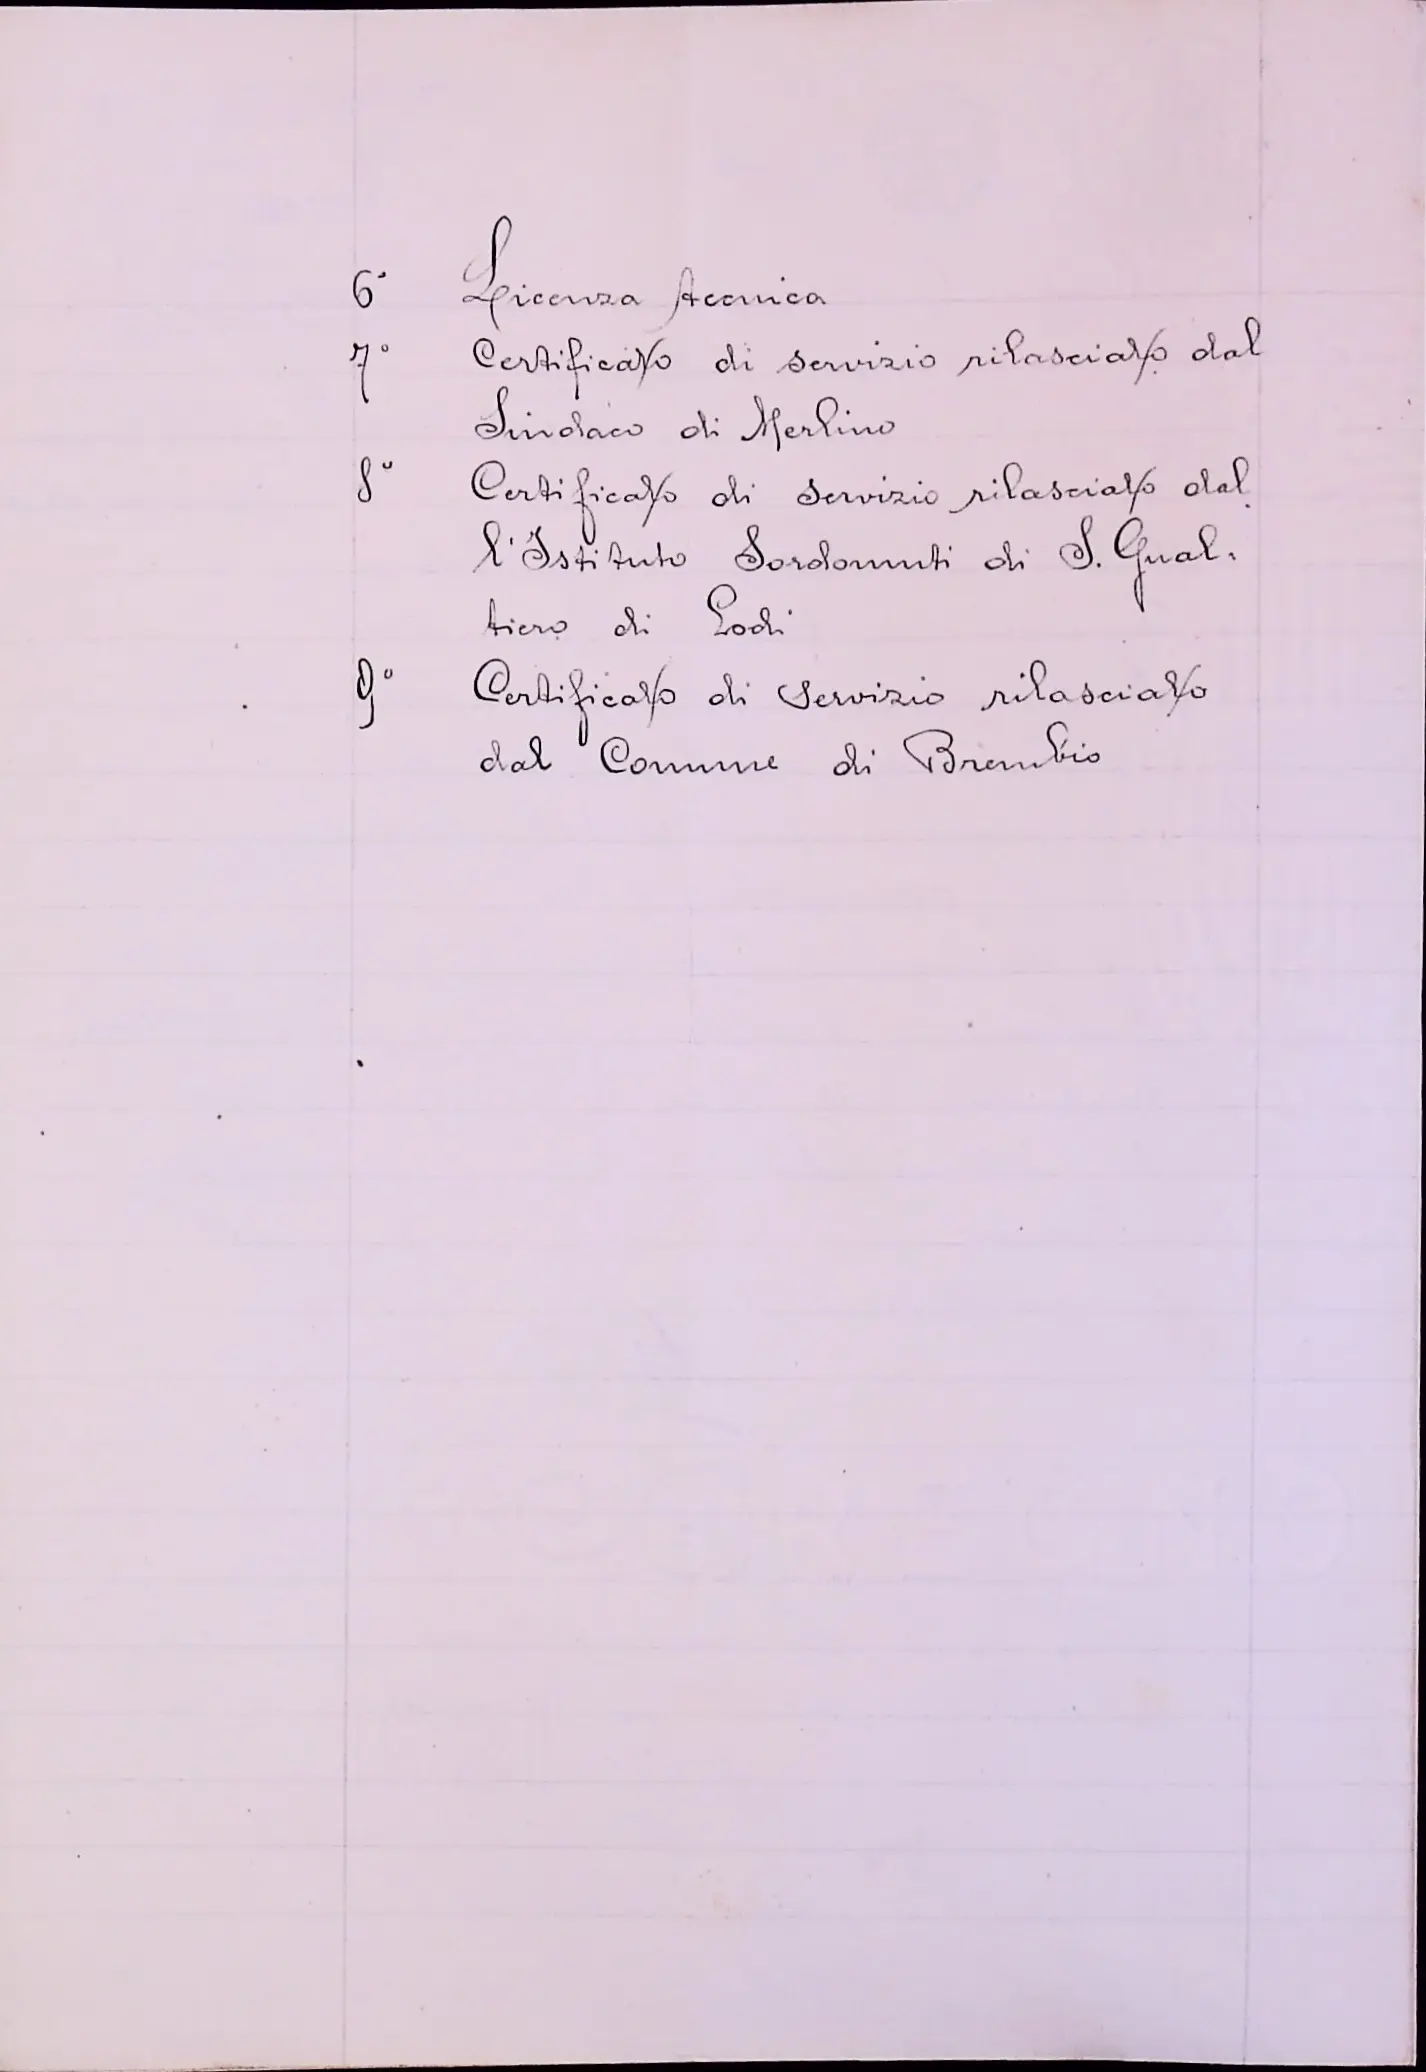 6° Licenza tecnica
7° Certificato di servizio rilasciato dal
Sindaco di Merlino
8° Certificato di servizio rilasciato dal
l'Istituto Sordomuti di S. Gual-
tiero di Lodi
9° Certificato di servizio rilasciato
dal Comune di Brembio